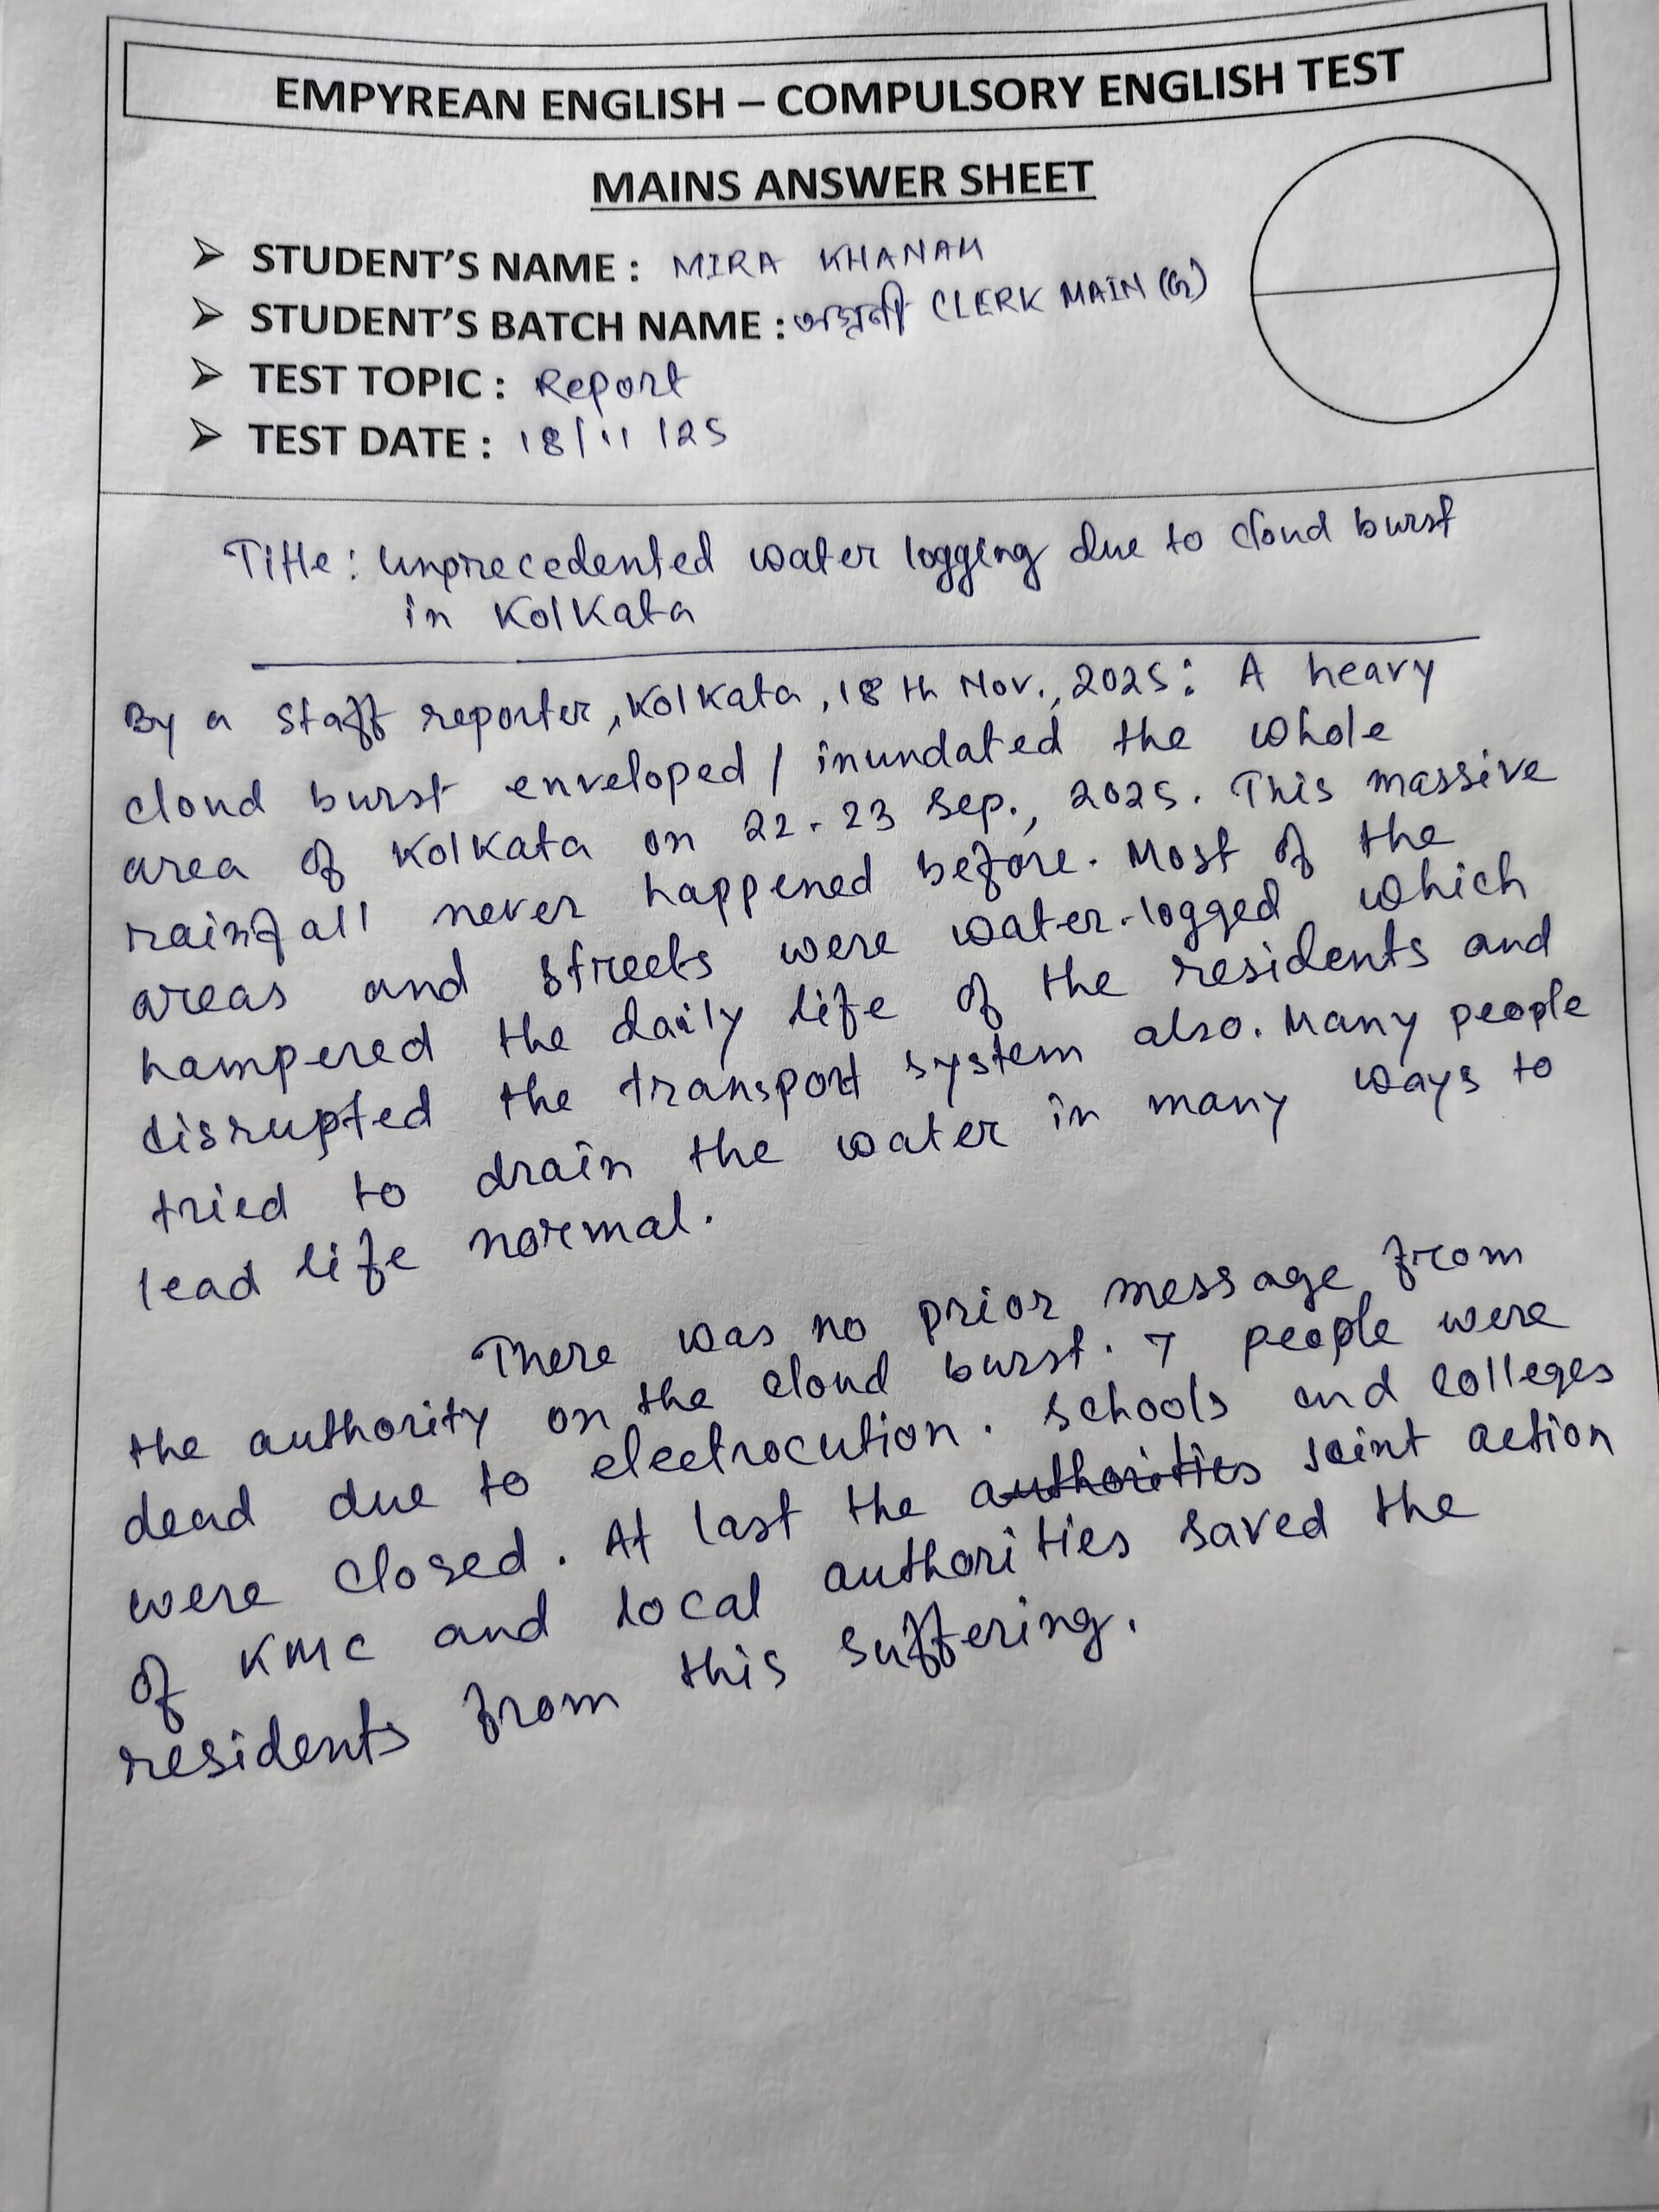 EMPYREAN ENGLISH – COMPULSORY ENGLISH TEST
MAINS ANSWER SHEET
➢ STUDENT'S NAME : MIRA KHANAM
➢ STUDENT'S BATCH NAME : CLERK MAIN
➢ TEST TOPIC : Report
➢ TEST DATE : 18/11/25
Title: Unprecedented water logging due to cloud burst
in Kolkata
By a staff reporter, Kolkata, 18th Nov., 2025: A heavy
cloud burst enveloped / inundated the whole
area of Kolkata on 22-23 Sep., 2025. This massive
rainfall never happened before. Most of the
areas and streets were water-logged which
hampered the daily life of the residents and
disrupted the transport system also. Many people
tried to drain the water in many ways to
lead life normal.
There was no prior message from
the authority on the cloud burst. 7 people were
dead due to electrocution. Schools and colleges
were closed. At last the authorities joint action
of KMC and local authorities saved the
residents from this suffering.